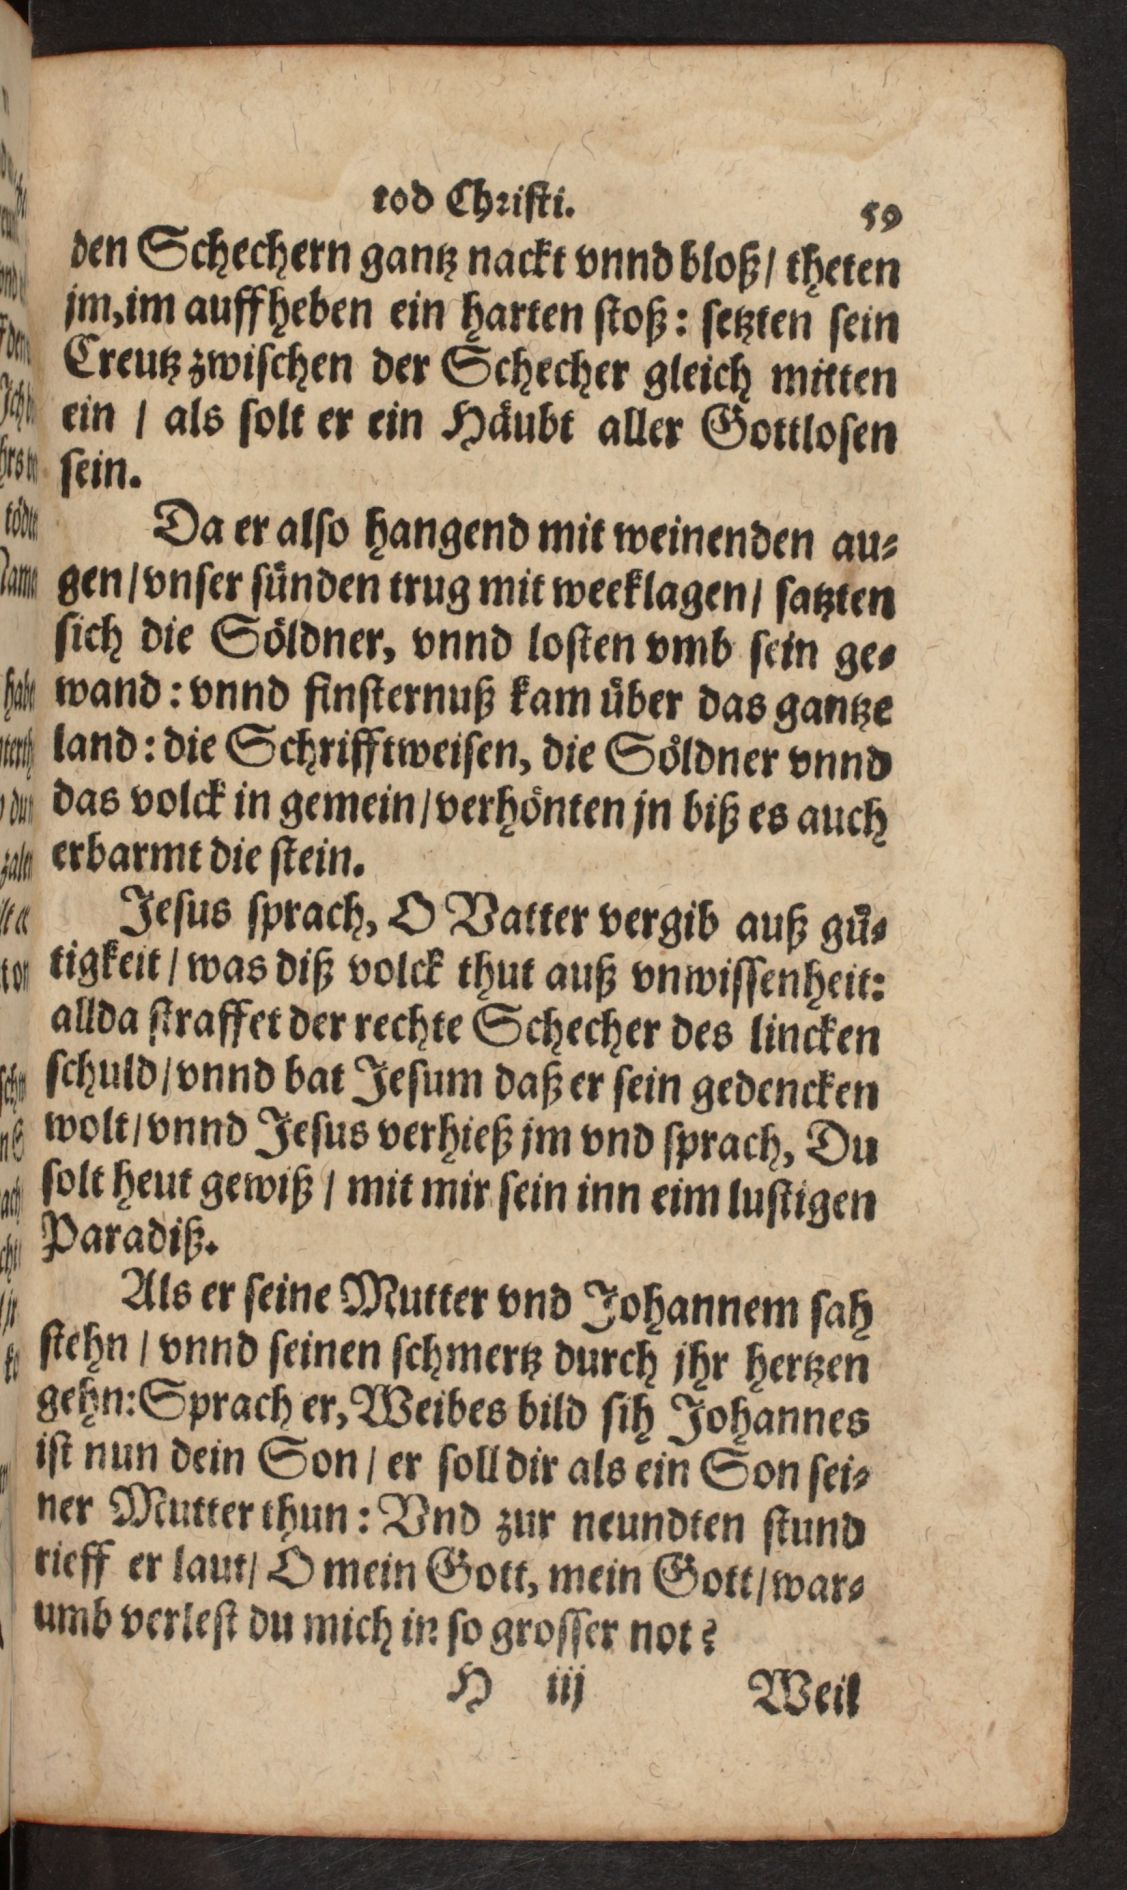 tod Christi. 59
den Schechern gantz nackt vnnd bloß / theten
jm, im auffheben ein harten stoß: setzten sein
Creutz zwischen der Schecher gleich mitten
ein / als solt er ein Häubt aller Gottlosen
sein.
Da er also hangend mit weinenden au-
gen / vnser sünden trug mit weeklagen / satzten
sich die Söldner, vnnd losten vmb sein ge-
wand: vnnd finsternuß kam über das gantze
land: die Schrifftweisen, die Söldner vnnd
das volck in gemein / verhönten jn biß es auch
erbarmt die stein.
Jesus sprach, O Vatter vergib auß gü-
tigkeit / was diß volck thut auß vnwissenheit:
allda straffet der rechte Schecher des lincken
schuld / vnnd bat Jesum daß er sein gedencken
wolt / vnnd Jesus verhieß jm vnd sprach, Du
solt heut gewiß / mit mir sein inn eim lustigen
Paradiß.
Als er seine Mutter vnd Johannem sah
stehn / vnnd seinen schmertz durch jhr hertzen
gehn: Sprach er, Weibes bild sih Johannes
ist nun dein Son / er soll dir als ein Son sei-
ner Mutter thun: Vnd zur neundten stund
rieff er laut / O mein Gott, mein Gott / war-
umb verlest du mich in so grosser not?
H iij Weil